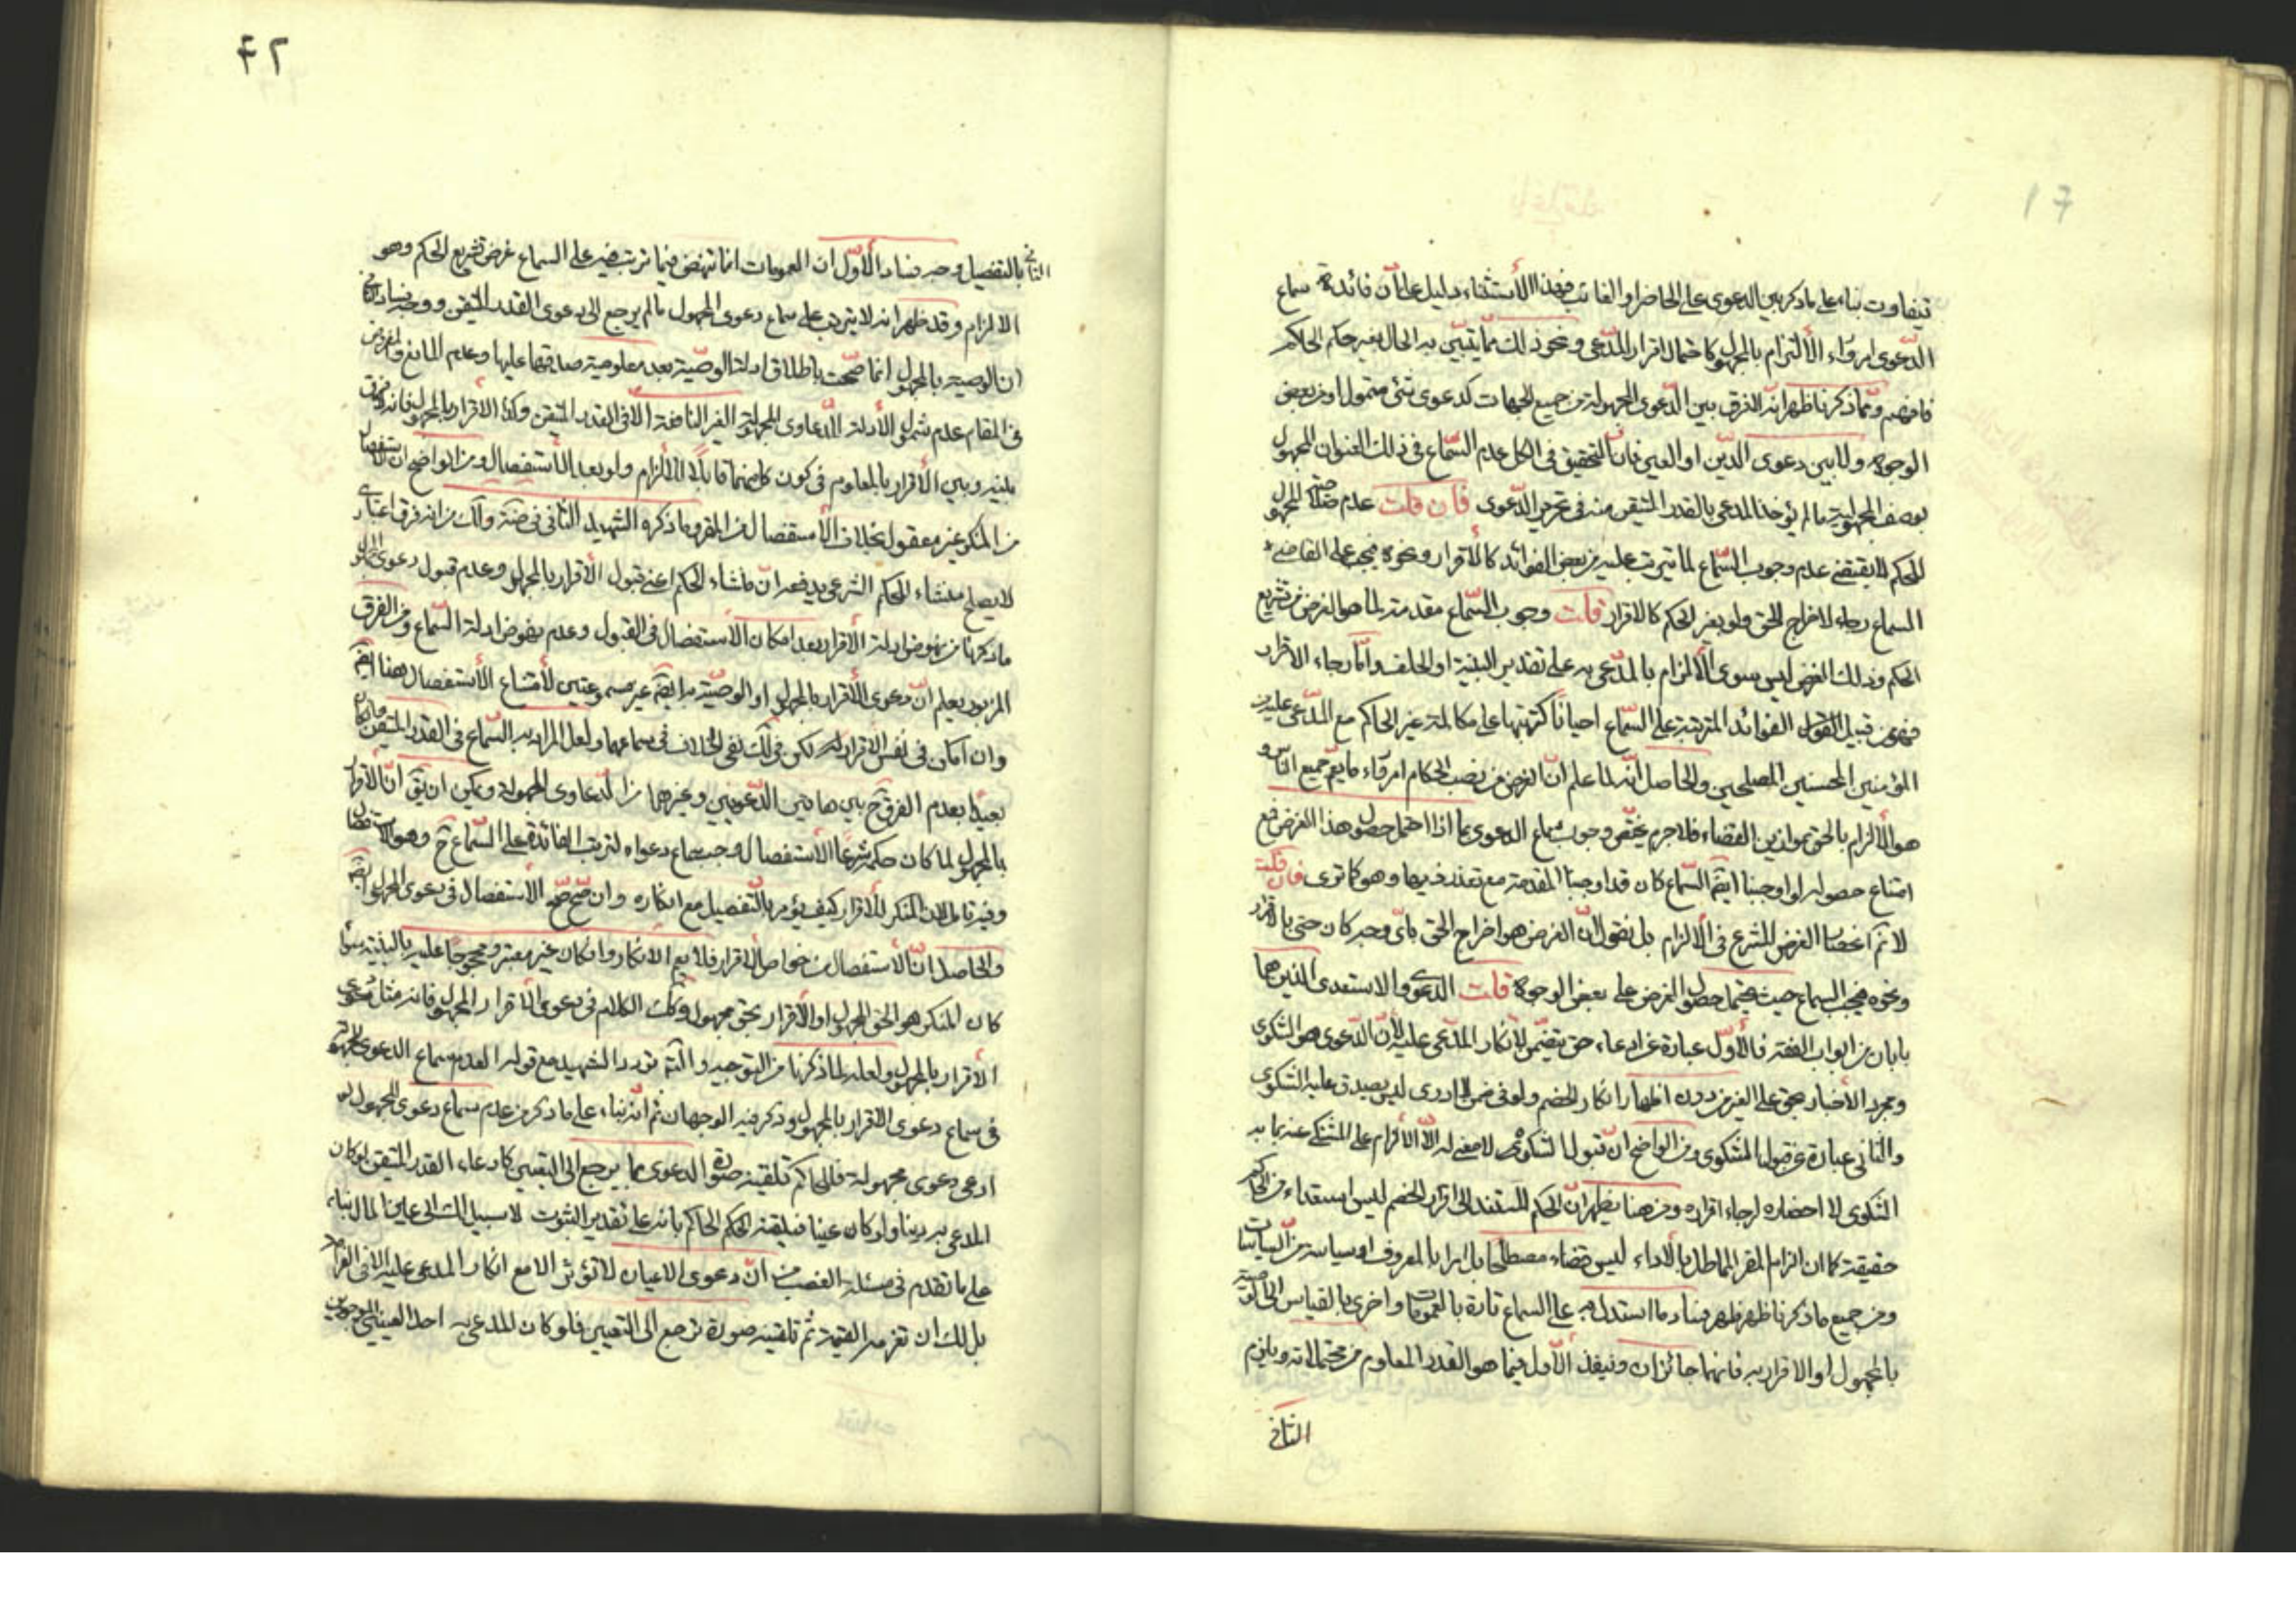 ١٦
يتفاوت بناء على ما ذكر بين الدعوى على الحاضر او الغائب فهذا الأستثناء دليل على أن فائدة سماع
الدّعوى امر وراء الألتزام بالمجهول كاحتمال اقرار المدّعى ونحو ذلك مما يتبيّن به الحال بغير حكم الحاكم
فافهم وممّا ذكرنا ظهر انه لا فرق بين الدّعوى المجهولة من جميع الجهات كدعوى شئ متمول او من بعض
الوجوه ولا بين دعوى الدّين او العين فانّ التحقيق فى الكل عدم السّماع فى ذلك العنوان المجهول
بوصف المجهولية ما لم يؤخذ المدعى بالقدر المتيقن منه فى تحرير الدّعوى فان قلت عدم صلاحية المجهول
للحكم لا يقتضى عدم وجوب السّماع لما يترتب عليه من بعض الفوائد كالأقرار ونحوه فيجب على القاضى
السماع رجاء لاخراج الحق ولو بغير الحكم كالاقرار قلت وجوب السّماع مقدمة لما هو الغرض من تشريع
الحكم وذلك الغرض ليس سوى الألزام بالمدّعى به على تقدير البيّنة او الحلف وامّا رجاء الاقرار
فهو من قبيل الفوائد المترتبة على السّماع احيانا كترتبها على مكالمة غير الحاكم مع المدّعى عليه من
المؤمنين المحسنين المصلحين والحاصل انّه لما علم انّ الغرض من نصب الحكام امر وراء ما يعم جميع الناس و
هو الألزام بالحق بموازين القضاء فلا جرم يختص وجوب سماع الدعوى بما اذا احتمل حصول هذا الغرض فمع
امتناع حصوله لو اوجبنا ايضا السّماع كان قد اوجبنا المقدمة مع تعذر ذيها وهو كما ترى فان قلت
لا نم انحصار الغرض للشرع فى الألزام بل نقول انّ الغرض هو اخراج الحق باىّ وجه كان حتى بالاقرار
ونحوه فيجب السماع حيث يحتمل حصول الغرض على بعض الوجوه قلت الدعوى والاستعدى اللذين هما
بابان من ابواب الفقه فالأوّل عبارة عن ادعاء حق يتضمّن لانكار المدّعى عليه لأنّ الدّعوى هو الشكوى
ومجرد الأخبار بحق على الغير من دون اظهار انكار الخصم ولو فى ضمن لا ادرى ليس يصدق عليه الشكوى
والثانى عبارة عن قبول المشكوى ومن الواضح انّ قبول الشكوى لا معنى له الّا الألزام على المشتكى عنه بما به
الشكوى لا احضاره لرجاء اقراره ومن هنا يظهر انّ الحكم المستند الى اقرار الخصم ليس استعداء من الحاكم
حقيقة كما ان الزام المقر المماطل بالأداء ليس قضاء مصطلحا بل امرا بالمعروف او سياسة من السياسات
ومن جميع ما ذكرنا ظهر ظهر فساد ما استدل به على السماع تارة بالعمومات واخرى بالقياس الى الوصية
بالمجهول او الاقرار به فانهما جائزان وينفذ الأول فيما هو القدر المعلوم من محتملاته ويلزم
الثانى
الثانى بالتفصيل وجه فساد الأوّل ان العمومات انما تنهض فيما ترتب فيه على السماع غرض تشريع الحكم وهو
الالزام وقد ظهر انه لا يترتب على سماع دعوى المجهول ما لم يرجع الى دعوى القدر المتيقن ووجه فساد الثانى
ان الوصيّة بالمجهول انما صحّحت باطلاق ادلة الوصيّة بعد معلومية صدقها عليها وعدم المانع والمفروض
فى المقام عدم شمول الأدلة الدّعاوى المجهولة الغير النافعة الا فى القدر المتيقن وكذا الاقرار بالمجهول فانه لا فرق
بينه وبين الأقرار بالمعلوم فى كون كل منهما قابلا للألزام ولو بعد الأستفصال ومن الواضح ان الاستفصال
من المنكر غير معقول بخلاف الأستفصال من المقر وما ذكره الشهيد الثانى فى ضة ولك من انه فرق اعتبارى
لا يصلح منشاء للحكم الشرعى يدفعه انّ منشاء الحكم اعنى قبول الأقرار بالمجهول وعدم قبول دعوى المجهول
ما ذكرنا من نهوض ادلة الأقرار بعد امكان الأستفصال فى القبول وعدم نهوض ادلة السّماع ومن الفرق
المزبور يعلم انّ دعوى الأقرار بالمجهول او الوصيّة به ايضا غير مسموعتين لأمتناع الأستفصال هنا ايضا
وان امكن فى نفس الاقرار لكن فى لك نفى الخلاف فى سماعهما ولعل المراد به السّماع فى القدر المتيقن وان كان
بعيدا بعدم الفرق ح بين هاتين الدّعويين وغيرهما من الدّعاوى المجهولة ويمكن ان يق انّ الأقرار
بالمجهول لما كان حكمه شرعا الأستفصال وجب سماع دعواه لترتب الفائدة على السّماع ح وهو الاستفصال
وفيه تامل لان المنكر للأقرار كيف يؤمر بالتفصيل مع انكاره وان صح صح الأستفصال فى دعوى المجهول ايضا
والحاصل انّ الأستفصال من خواص الأقرار فلا يعم الأنكار وان كان غير معتبر ومحجوجا عليه بالبيّنة سواء
كان المنكر هو الحق المجهول او الأقرار بحق مجهول وكك الكلام فى دعوى الأقرار المجهول فانه مثل دعوى
الأقرار بالمجهول ولعله لما ذكرنا من التوجيه والتنبه تردد الشهيد مع قوله لعدم سماع الدعوى المجهولة
فى سماع دعوى الاقرار بالمجهول وذكر فيه الوجهان ثم انّه بناء على ما ذكر من عدم سماع دعوى المجهول لو
ادعى دعوى مجهولة فللحاكم تلقينه صورة الدعوى بما يرجع الى التعيين كادعاء القدر المتيقن لو كان
المدعى به دينا ولو كان عينا فيلقنه الحكم الحاكم بانه على تقدير الثبوت لا سبيل لك الى عين المال بناء
على ما تقدم فى مسئلة الغصب من انّ دعوى الاعيان لا تؤثر الا مع انكار المدعى عليه الا فى الغرامة
بل لك ان تغرمه القيمة ثم تلقينه صورة ترجع الى التعيين فلو كان المدعى به احد العينين الموجودين